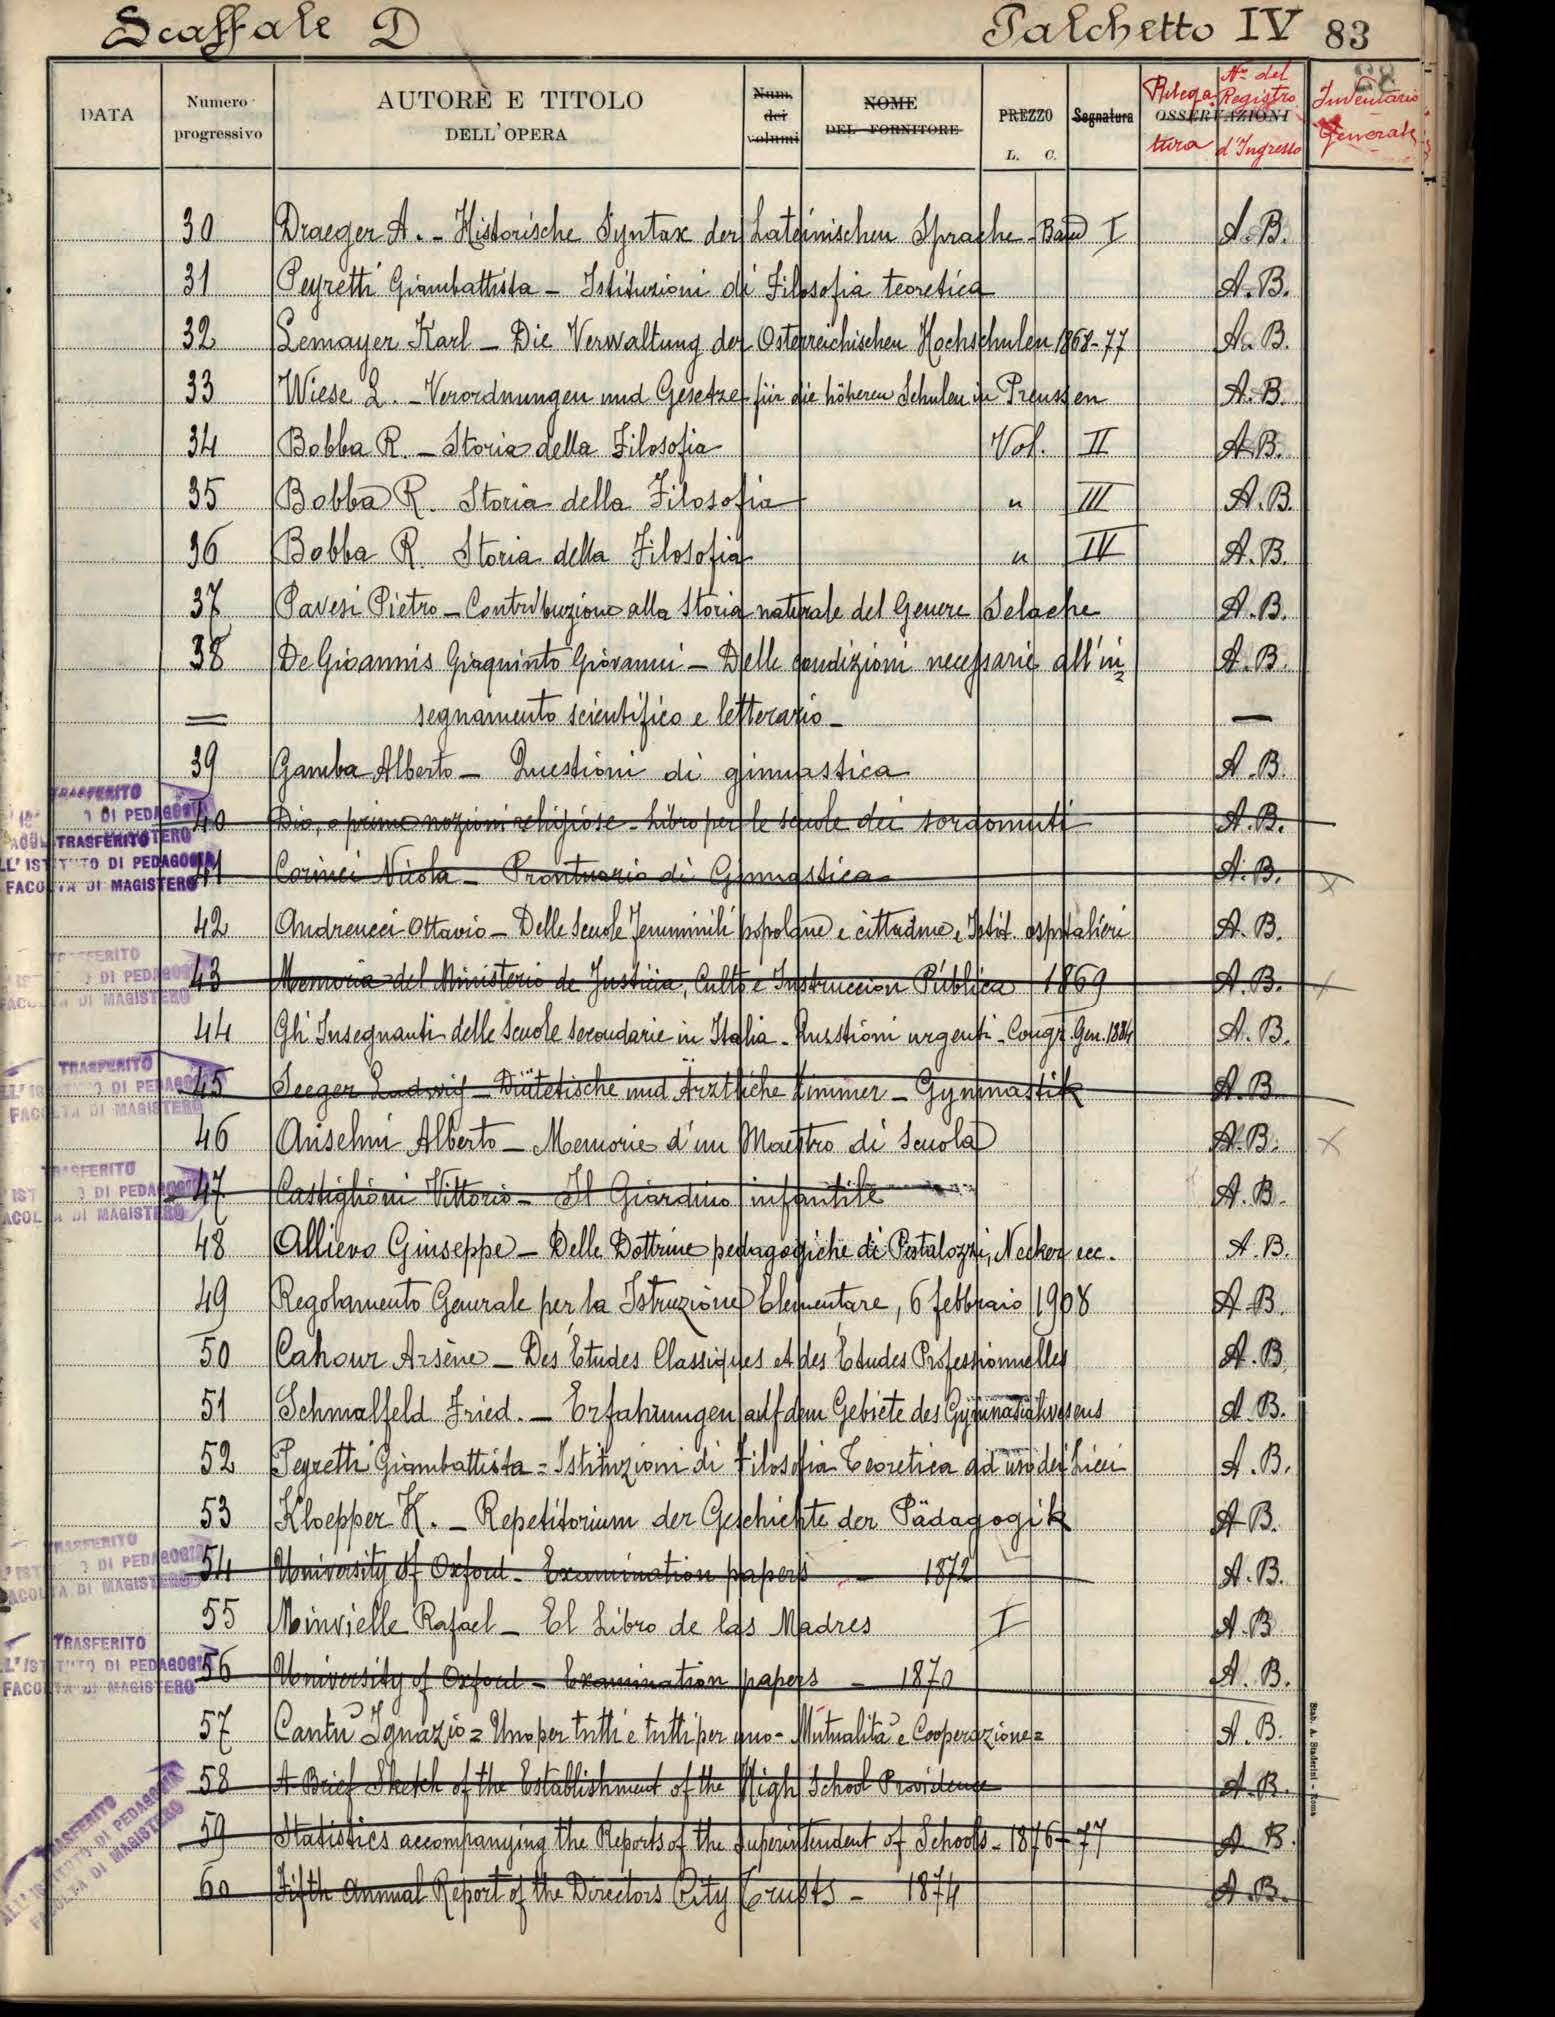 Scaffale D Palchetto IV 83
DATA Numero progressivo AUTORE E TITOLO DELL'OPERA Num. dei volumi NOME DEL FORNITORE PREZZO L. C. Segnatura Rilegatura OSSERVAZIONI Nº del Registro d'Ingresso Inventario Generale
30 Draeger A. - Historische Syntax der Lateinischen Sprache - Band I A.B.
31 Peyretti Giambattista - Istituzioni di Filosofia teoretica A.B.
32 Lemayer Karl - Die Verwaltung der Osterreichischen Hochschulen 1868-77 A.B.
33 Wiese L. - Verordnungen und Gesetze für die höheren Schulen in Preussen A.B.
34 Bobba R. - Storia della Filosofia Vol. II A.B.
35 Bobba R. Storia della Filosofia " III A.B.
36 Bobba R. Storia della Filosofia " IV A.B.
37 Pavesi Pietro - Contribuzione alla Storia naturale del Genere Selache A.B.
38 De Gioannis Giaquinto Giovanni - Delle condizioni necessarie all'in=
= segnamento scientifico e letterario - —
39 Gamba Alberto - Questioni di ginnastica A.B.
40 Dio, e prime nozioni religiose - Libro per le scuole dei sordomuti A.B.
41 Corinei Nicola - Prontuario di Ginnastica - A.B.
42 Andreucci Ottavio - Delle Scuole Femminili popolane e cittadine, e Istit. ospitalieri A.B.
43 Memoria del Ministerio de Justicia, Culto e Instruccion Pública 1869 A.B.
44 Gli Insegnanti delle Scuole secondarie in Italia - Quistioni urgenti - Congr. Gen. 1884 A.B.
45 Seeger Ludwig - Diätetische und Ärztliche Zimmer - Gymnastik A.B.
46 Anselmi Alberto - Memorie d'un Maestro di Scuola A.B.
47 Castiglioni Vittorio - Il Giardino infantile A.B.
48 Allievo Giuseppe - Delle Dottrine pedagogiche di Pestalozzi, Necker ecc. A.B.
49 Regolamento Generale per la Istruzione Elementare, 6 febbraio 1908 A.B.
50 Cahour Arsène - Des Études Classiques et des Études Professionnelles A.B.
51 Schmalfeld Fried. - Erfahrungen auf dem Gebiete des Gymnasialwesens A.B.
52 Peyretti Giambattista = Istituzioni di Filosofia Teoretica ad uso dei Licei A.B.
53 Kloepper K. - Repetitorium der Geschichte der Pädagogik A.B.
54 University of Oxford - Examination papers - 1872 A.B.
55 Minvielle Rafael - El Libro de las Madres I A.B.
56 University of Oxford - Examination papers - 1870 A.B.
57 Cantù Ignazio = Uno per tutti e tutti per uno - Mutualità e Cooperazione = A.B.
58 A Brief Sketch of the Establishment of the High School Providence A.B.
59 Statistics accompanying the Reports of the Superintendent of Schools - 1876-77 A.B.
60 Fifth Annual Report of the Directors City Trusts - 1874 A.B.
TRASFERITO
DI PEDAGOGIA
TRASFERITO
ALL'ISTITUTO DI PEDAGOGIA
FACOLTÀ DI MAGISTERO
TRASFERITO
DI PEDAGOGIA
FACOLTÀ DI MAGISTERO
TRASFERITO
DI PEDAGOGIA
FACOLTÀ DI MAGISTERO
TRASFERITO
DI PEDAGOGIA
FACOLTÀ DI MAGISTERO
TRASFERITO
DI PEDAGOGIA
FACOLTÀ DI MAGISTERO
TRASFERITO
ALL'ISTITUTO DI PEDAGOGIA
FACOLTÀ DI MAGISTERO
TRASFERITO
ALL'ISTITUTO DI PEDAGOGIA
FACOLTÀ DI MAGISTERO
Stab. A. Staderini - Roma